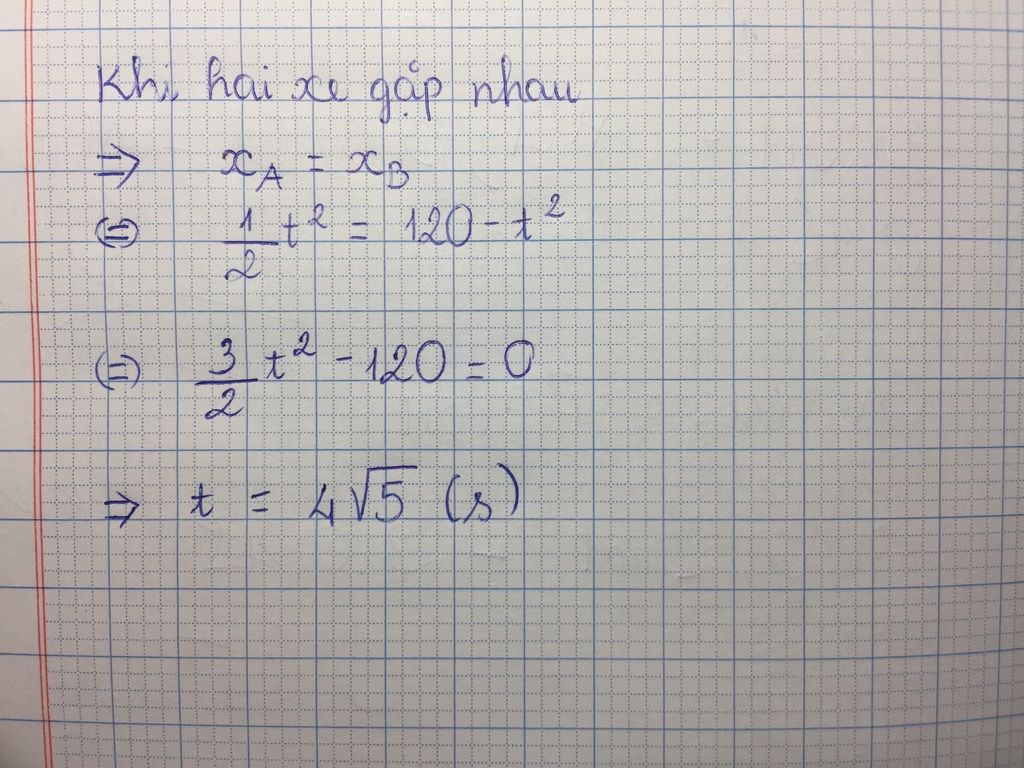 Khi hai xe gặp nhau
⇒ x_A = x_B
⇔ 1/2 t² = 120 - t²
⇔ 3/2 t² - 120 = 0
⇒ t = 4√5 (s)